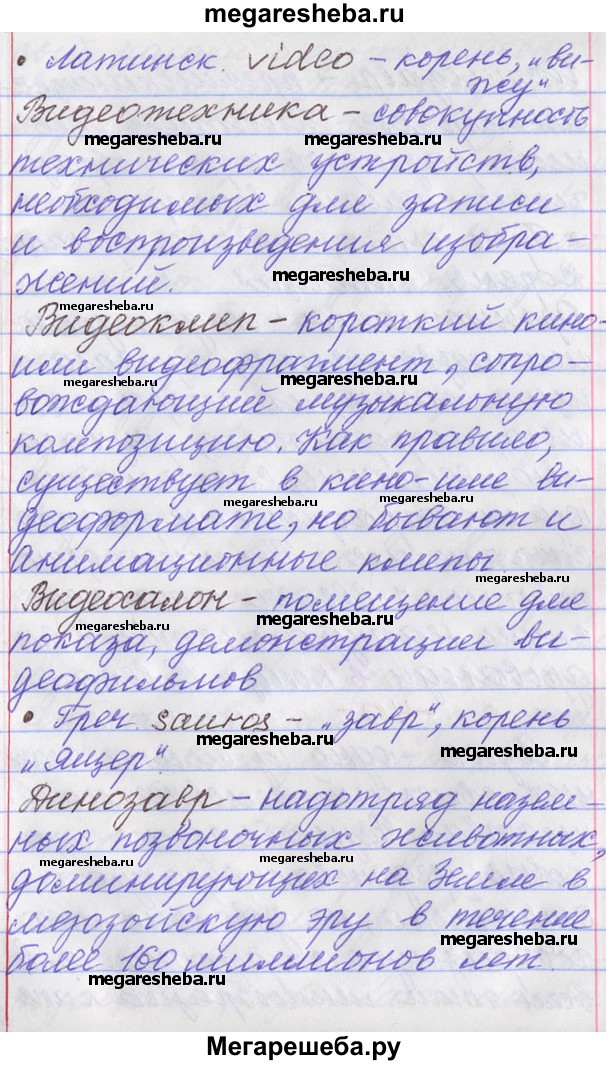 megaresheba.ru
• Латинск. video – корень, „ви-
жу“
Видеотехника – совокупность
megaresheba.ru
megaresheba.ru
технических устройств,
необходимых для записи
и воспроизведения изобра-
жений.
megaresheba.ru
megaresheba.ru
Видеоклип – короткий кино-
или видеофрагмент, сопро-
megaresheba.ru
megaresheba.ru
вождающий музыкальную
композицию. Как правило,
существует в кино- или ви-
megaresheba.ru
megaresheba.ru
деоформате, но бывают и
анимационные клипы.
megaresheba.ru
Видеосалон – помещение для
megaresheba.ru
показа, демонстрации ви-
деофильмов
• Греч. sauros – „завр“, корень
megaresheba.ru
megaresheba.ru
„ящер“.
Динозавр – надотряд назем-
ных позвоночных животных,
megaresheba.ru
megaresheba.ru
доминирующих на Земле в
мезозойскую эру в течение
megaresheba.ru
более 160 миллионов лет.
megaresheba.ru
Мегарешеба.ру